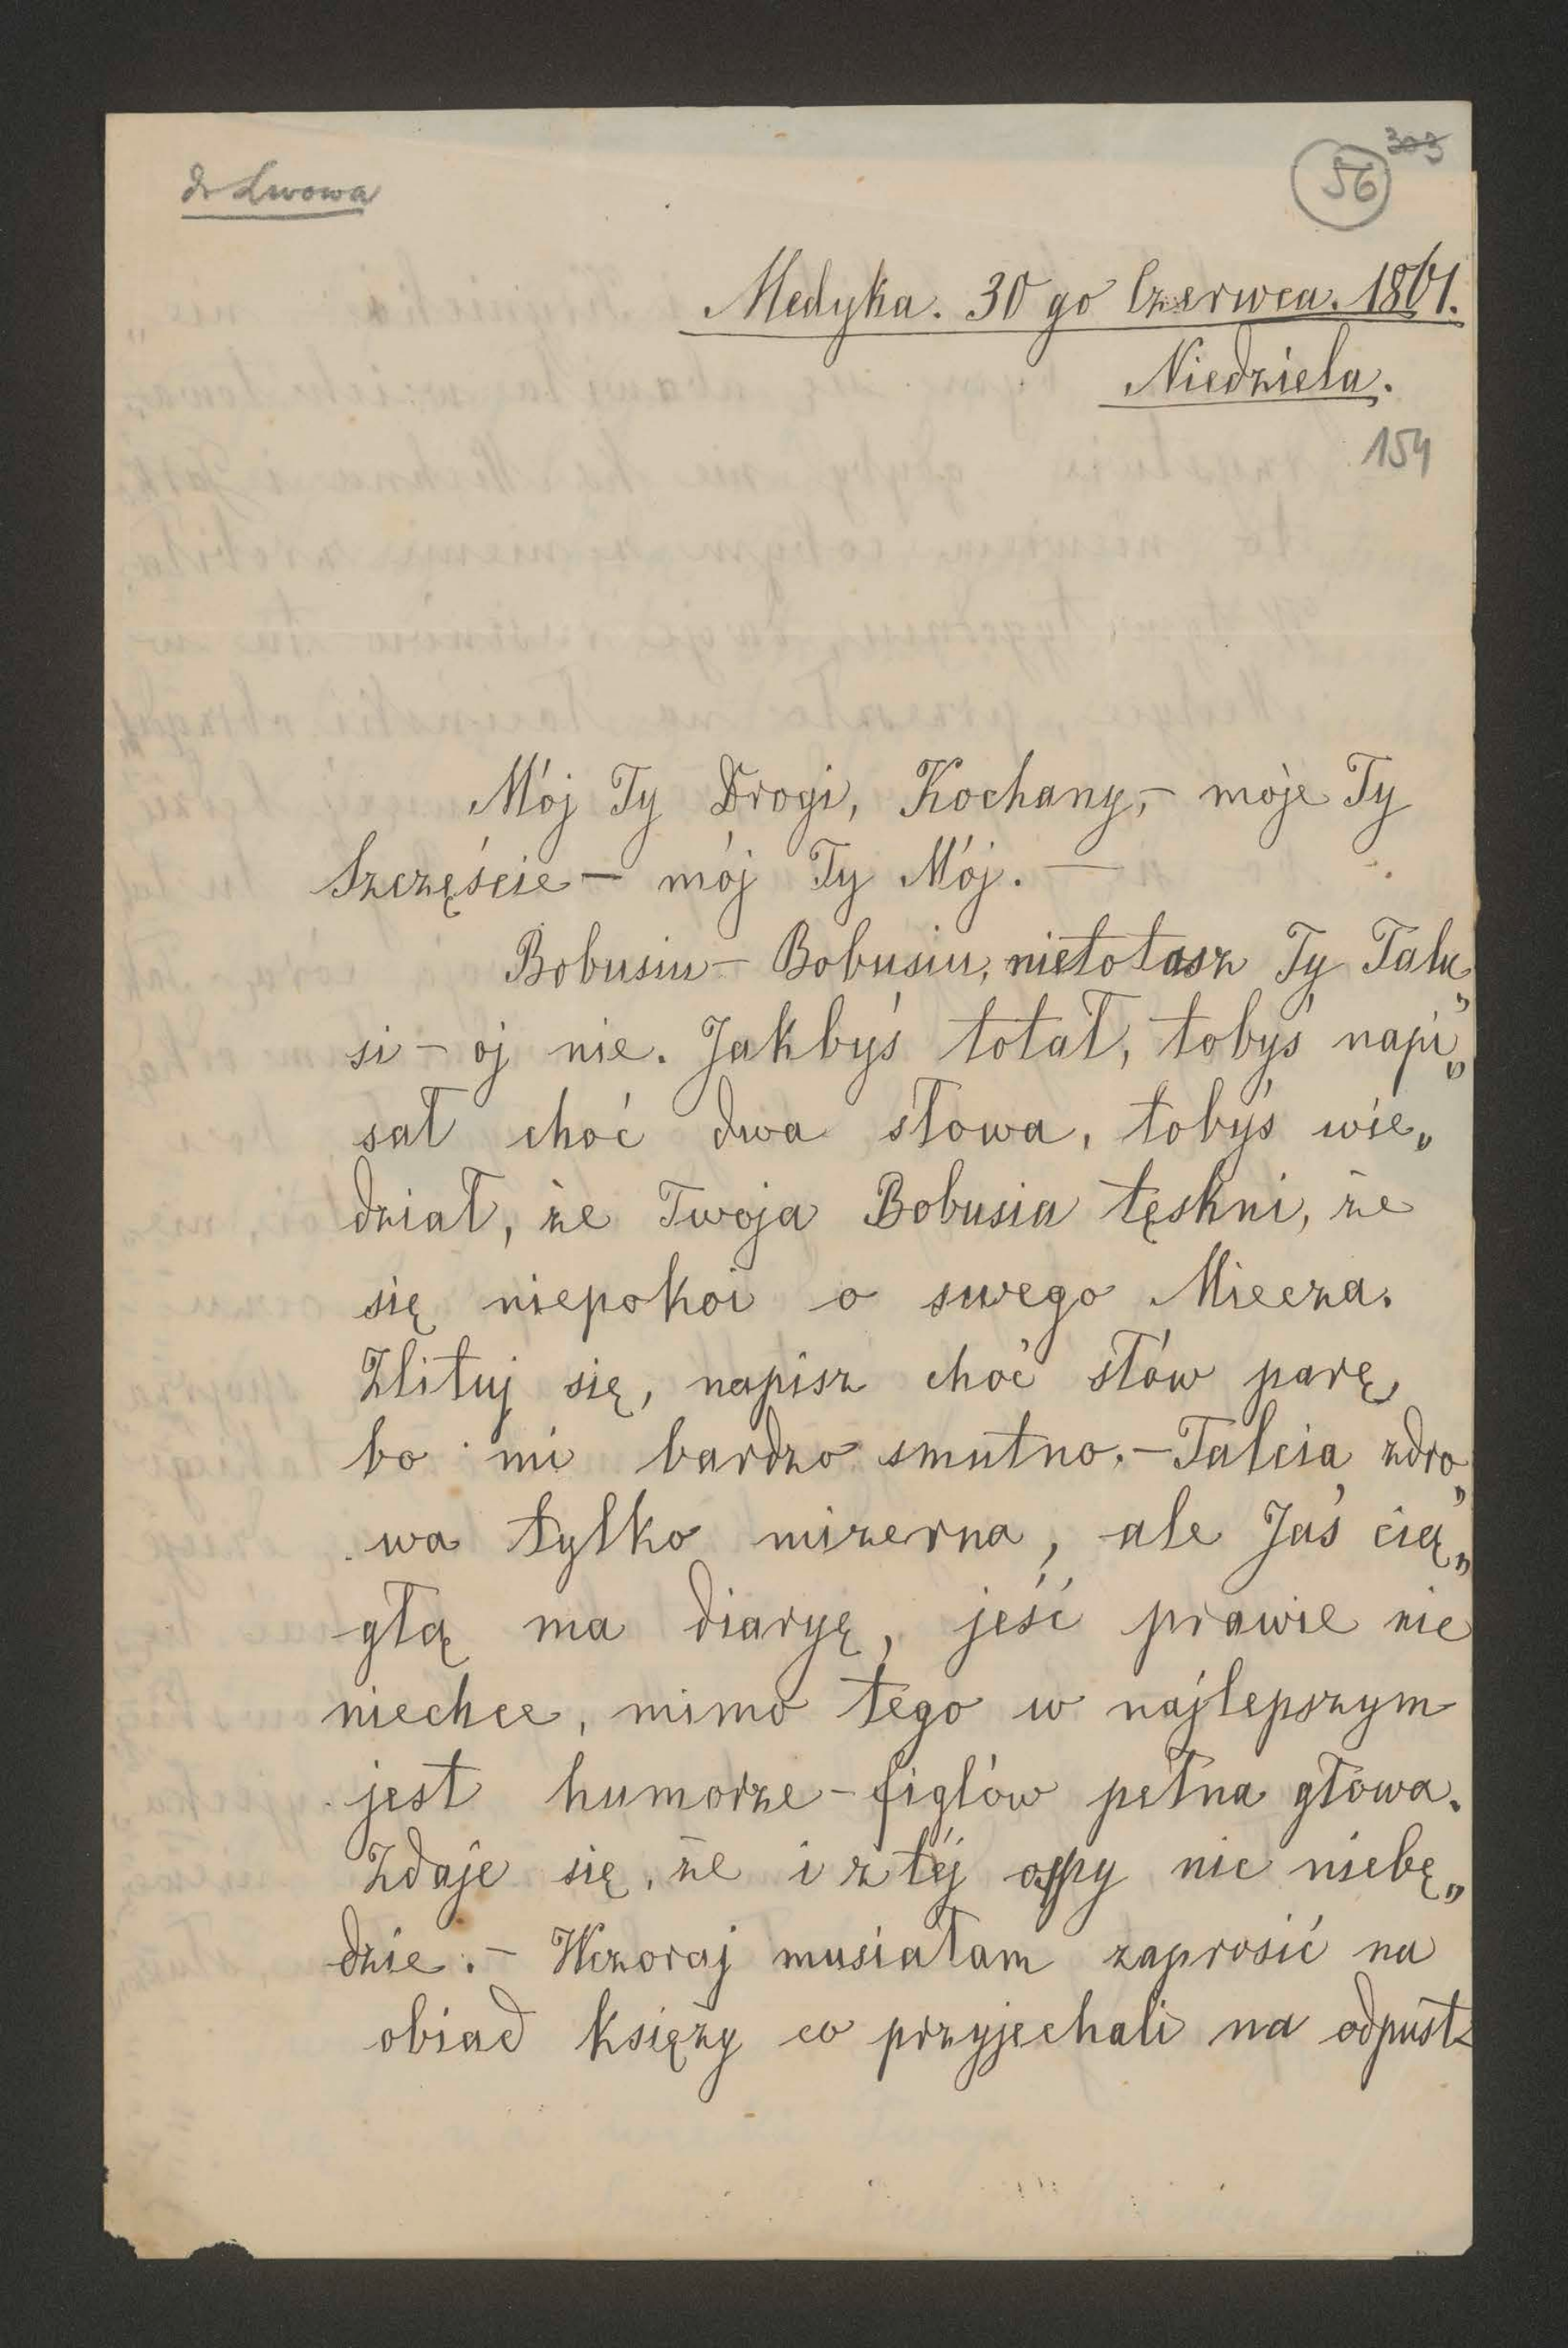 do Lwowa
303
56
Medyka. 30 go Czerwca. 1861.
Niedziela.
154
Mój Ty Drogi, Kochany,- moje Ty
Szczęście - mój Ty Mój. -
Bobusiu - Bobusiu, nietotasz Ty Talu„
si - oj nie. Jakbyś totał, tobyś napi„
sał choć dwa słowa, tobyś wie„
dział, że Twoja Bobusia tęskni, że
się niepokoi o swego Miecza.
Zlituj się, napisz choć słów parę,
bo mi bardzo smutno. - Talcia zdro„
wa tylko mizerna, ale Jaś cią„
głą ma diaryę, jeść prawie nic
niechce, mimo tego w najlepszym
jest humorze - figlów pełna głowa.
Zdaje się, że i z téj ospy nic niebę„
dzie. - Wczoraj musiałam zaprosić na
obiad księży co przyjechali na odpust